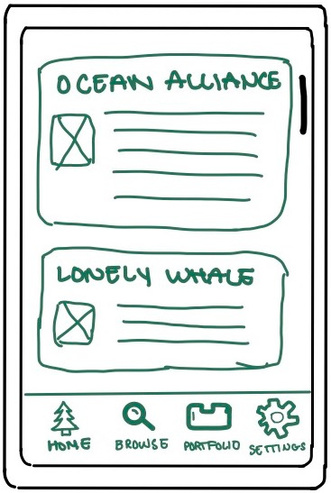 OCEAN ALLIANCE
LONELY WHALE
HOME BROWSE PORTFOLIO SETTINGS